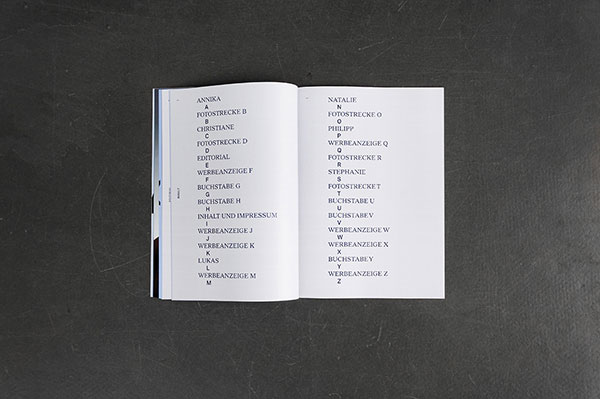 ANNIKA
A
FOTOSTRECKE B
B
CHRISTIANE
C
FOTOSTRECKE D
D
EDITORIAL
E
WERBEANZEIGE F
F
BUCHSTABE G
G
BUCHSTABE H
H
INHALT UND IMPRESSUM
I
WERBEANZEIGE J
J
WERBEANZEIGE K
K
LUKAS
L
WERBEANZEIGE M
M
NATALIE
N
FOTOSTRECKE O
O
PHILIPP
P
WERBEANZEIGE Q
Q
FOTOSTRECKE R
R
STEPHANIE
S
FOTOSTRECKE T
T
BUCHSTABE U
U
BUCHSTABE V
V
WERBEANZEIGE W
W
WERBEANZEIGE X
X
BUCHSTABE Y
Y
WERBEANZEIGE Z
Z